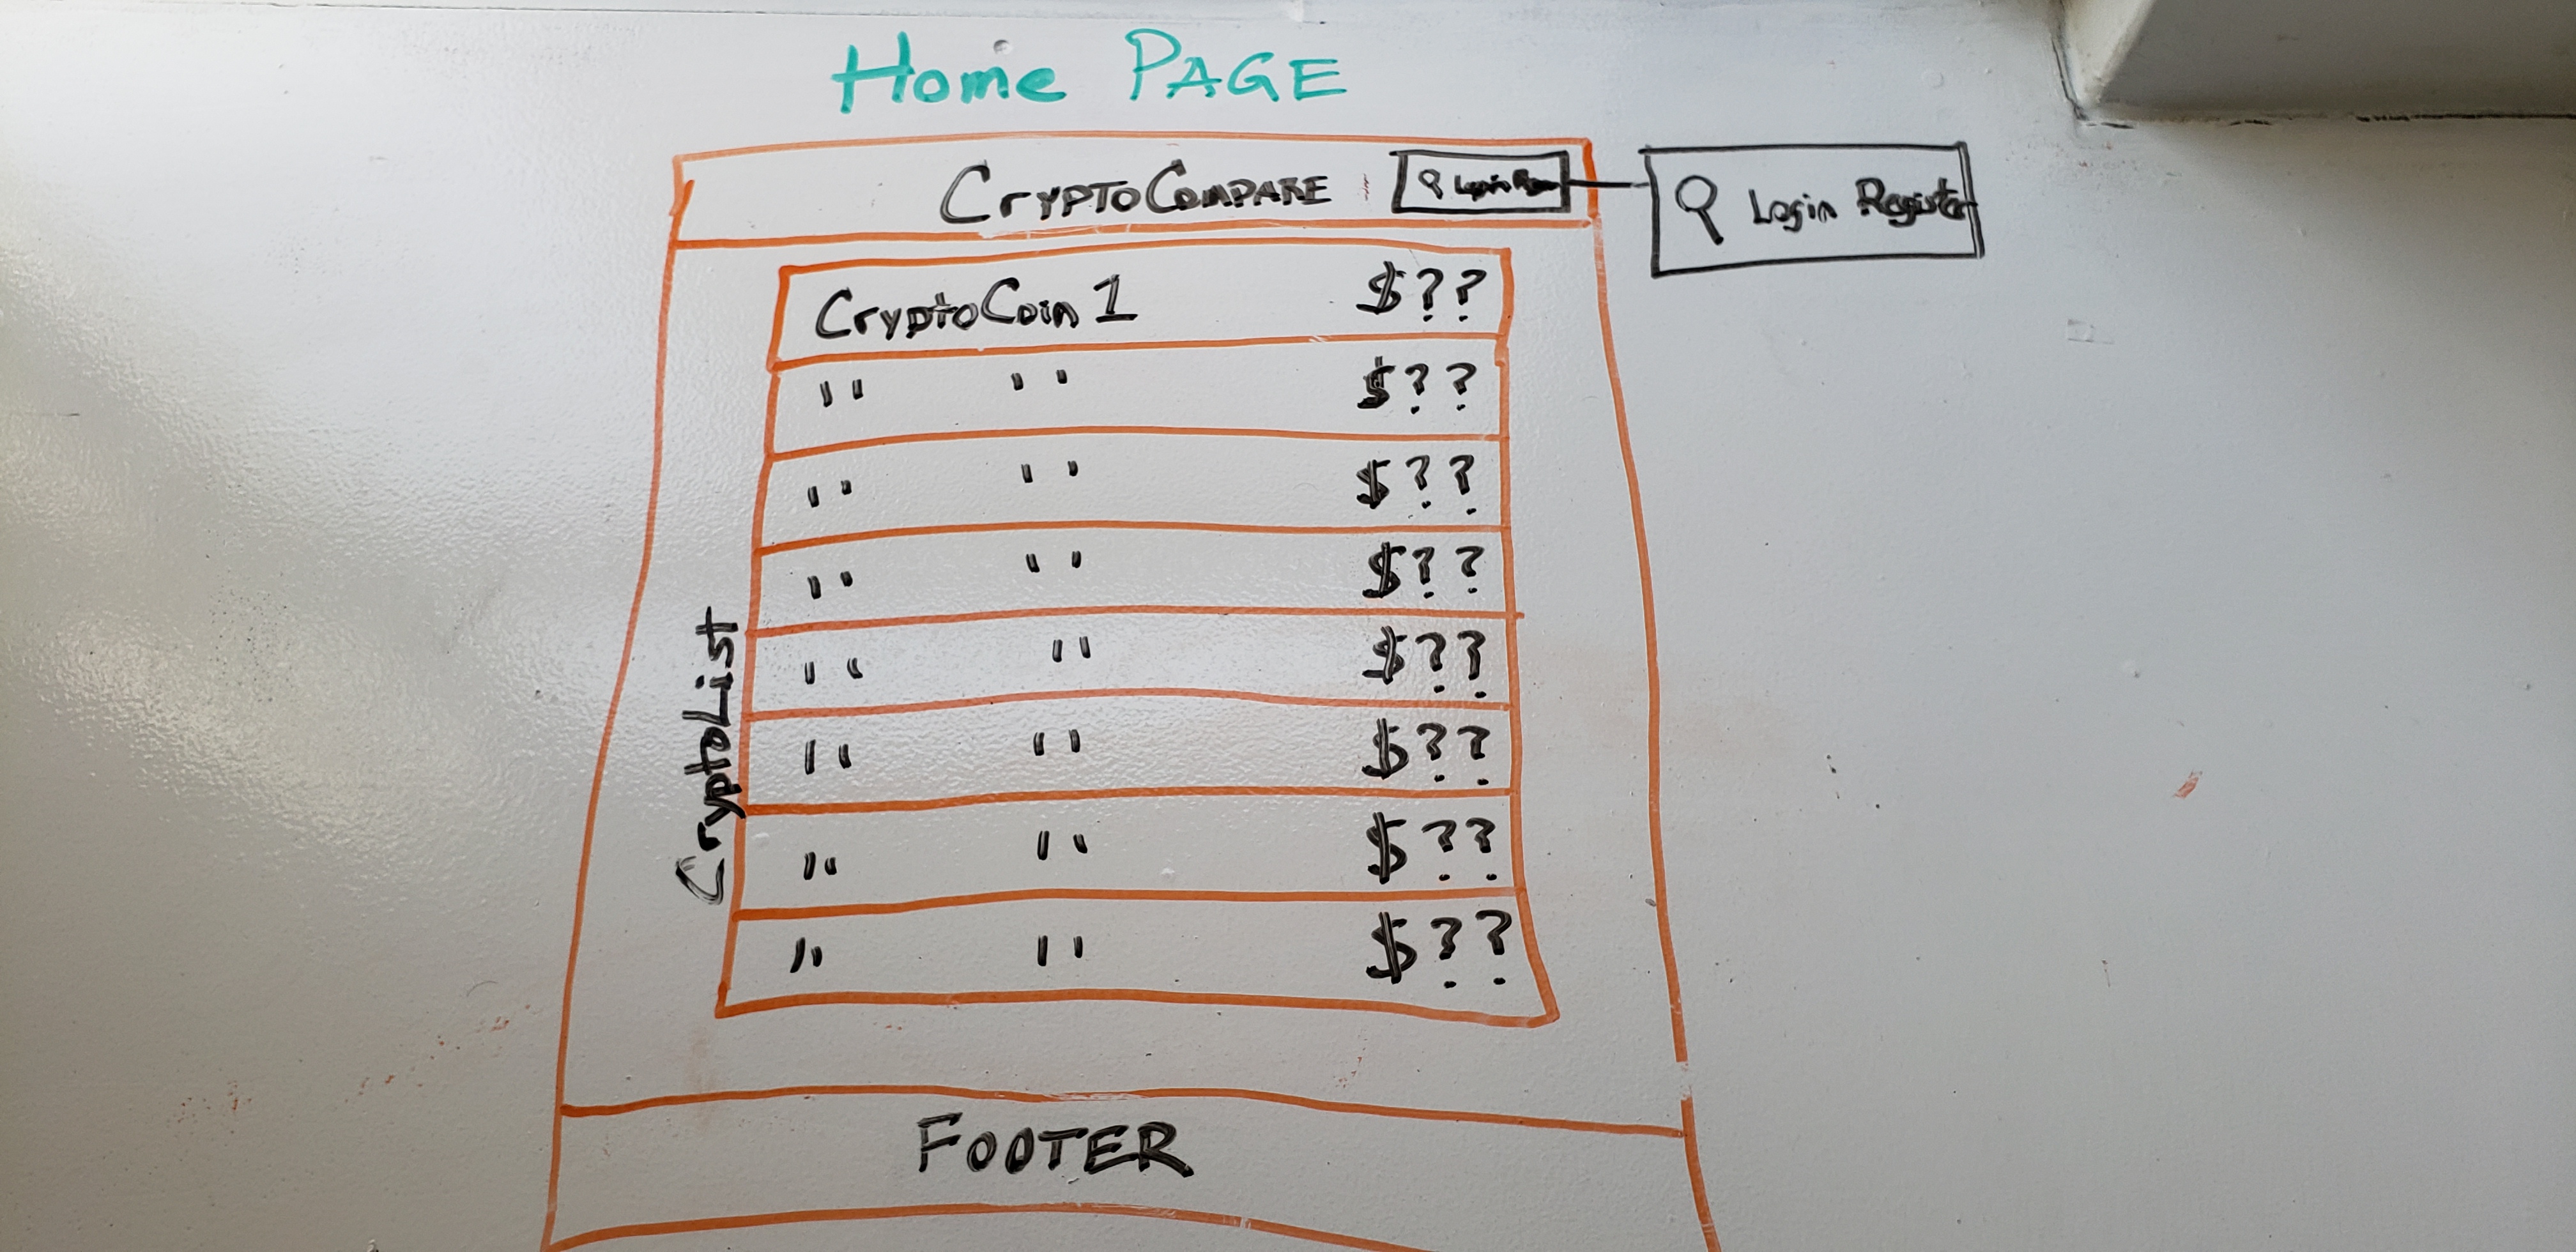 Home PAGE
CRYPTOCOMPARE Login
Login Register
CryptoCoin 1 $??
" " $??
" " $??
" " $??
" " $??
" " $??
" " $??
" " $??
CryptoList
FOOTER